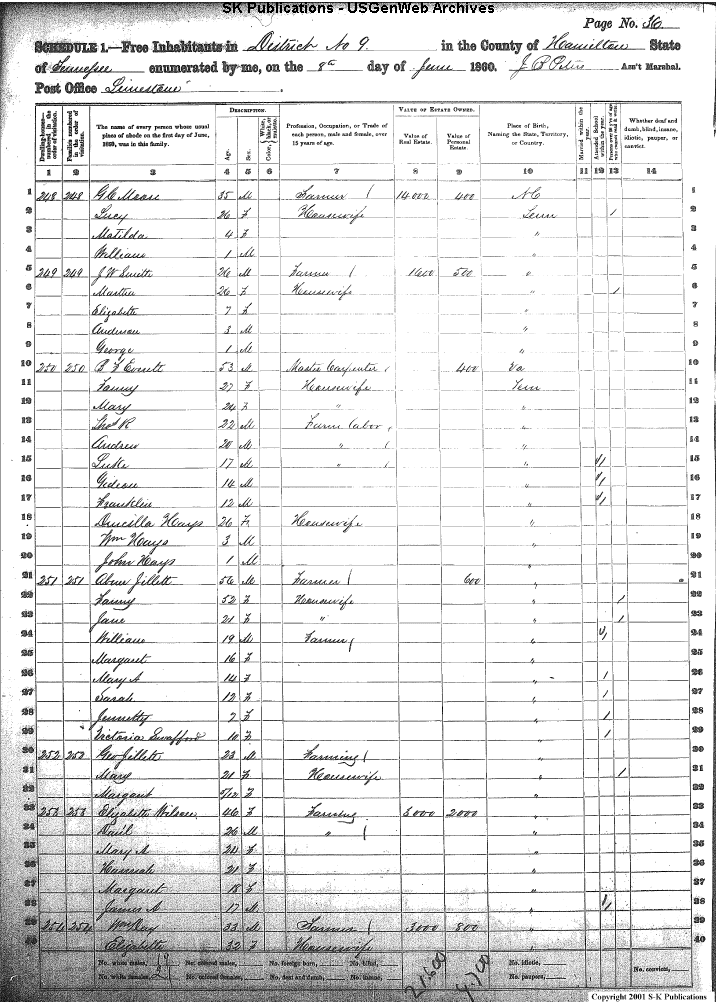 SK Publications - USGenWeb Archives
Page No. 36
SCHEDULE 1.—Free Inhabitants in District No 9. in the County of Hamilton State
of Tennessee enumerated by me, on the 8th day of June 1860. J P Peters Ass't Marshal.
Post Office Limestone.
Dwelling-houses—numbered in the order of visitation.
Families numbered in the order of visitation.
The name of every person whose usual place of abode on the first day of June, 1860, was in this family.
DESCRIPTION.
Age.
Sex.
Color, {White, black, or mulatto.
Profession, Occupation, or Trade of each person, male and female, over 15 years of age.
VALUE OF ESTATE OWNED.
Value of Real Estate.
Value of Personal Estate.
Place of Birth, Naming the State, Territory, or Country.
Married within the year.
Attended School within the year.
Whether deaf and dumb, blind, insane, idiotic, pauper, or convict.
1 2 3 4 5 6 7 8 9 10 11 12 13 14
1 248 248 35 M Farmer / 14.000 400 NC 1
2 Lucy 26 F Housewife Tenn / 2
3 Matilda 4 F " 3
4 William 1 M " 4
5 249 249 J W Smith 26 M Farmer / 1600 500 " 5
6 Martha 26 F Housewife " / 6
7 Elizabeth 7 F " 7
8 Anderson 3 M " 8
9 George 1 M " 9
10 250 250 B F Everett 53 M Master Carpenter / 400 Va 10
11 Fanny 27 F Housewife Tenn 11
12 Mary 24 F " " 12
13 Thos R 22 M Farm labor / " 13
14 Andrew 20 M " / " 14
15 Luke 17 M " / " 15
16 Gideon 14 M " 16
17 Franklin 12 M " 17
18 Drucilla Hays 26 F Housewife " 18
19 Wm Hays 3 M " 19
20 John Hays 1 M " 20
21 251 251 Abner Jillett 56 M Farmer / 600 " 21
22 Fanny 52 F Housewife " / 22
23 Jane 21 F " " / 23
24 William 19 M Farmer / " 24
25 Margaret 16 F " 25
26 Mary A 14 F " / 26
27 Sarah 12 F " / 27
28 7 F " / 28
29 Victoria Swafford 10 F " / 29
30 252 252 Geo Jillett 23 M Farming / " 30
31 Mary 21 F Housewife " / 31
32 Margaret F " 32
33 253 253 Elizabeth Wilson 46 F Farming 2000 " 33
34 26 M " / " 34
35 Mary A F " 35
36 Hannah 21 F " 36
37 Margaret 18 F " 37
38 James A 17 M " 38
39 254 254 Wm Ray 33 M Farmer / 3000 800 " 39
40 Elizabeth 32 F Housewife " 40
No. white males, 19 No. colored males, No. foreign born, No. blind, No. idiotic,
No. white females, 21 No. colored females, No. deaf and dumb, No. insane, No. paupers, No. convicts,
21.600 4.700
Copyright 2001 S-K Publications